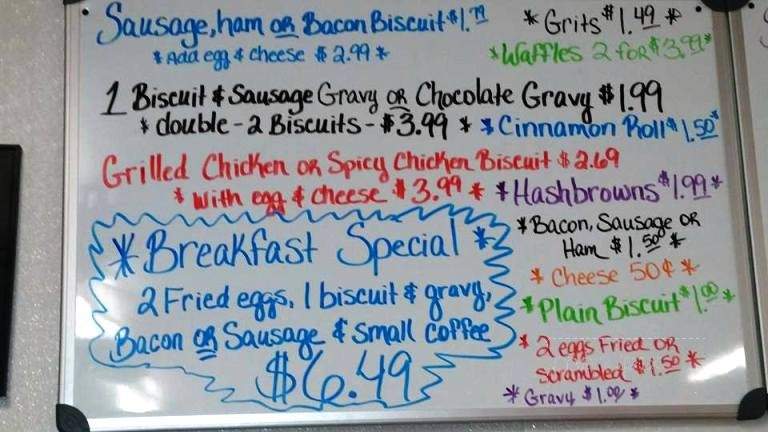 Sausage, ham or Bacon Biscuit $1.79
* Add egg & cheese $2.99 *
* Grits $1.49 *
* Waffles 2 for $3.99 *
1 Biscuit & Sausage Gravy or Chocolate Gravy $1.99
* double - 2 Biscuits - $3.99 *
* Cinnamon Roll $1.50 *
Grilled Chicken or Spicy Chicken Biscuit $2.69
* With egg & cheese $3.99 *
* Hashbrowns $1.99 *
* Breakfast Special *
2 Fried eggs, 1 biscuit & gravy,
Bacon or Sausage & small coffee
$6.49
* Bacon, Sausage or
Ham $1.50 *
* Cheese 50¢ *
* Plain Biscuit $1.00 *
* 2 eggs Fried or
Scrambled $1.50 *
* Gravy $1.00 *